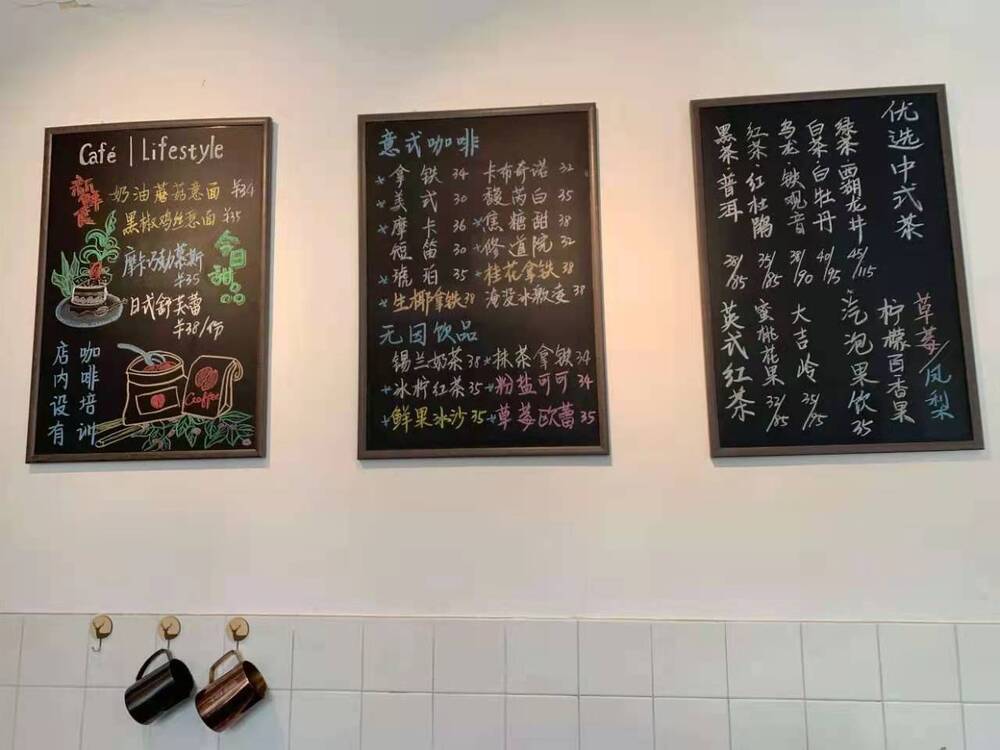 Café | Lifestyle
新鲜食
奶油蘑菇意面 ¥34
黑椒鸡丝意面 ¥35
今日甜品
摩卡巧勒慕斯
¥35
日式舒芙蕾
¥38/份
咖啡培训
店内设有
Coffee
意式咖啡
*拿铁 34 卡布奇诺 32
*美式 30 馥芮白 35
*摩卡 36 *焦糖甜 38
短笛 30 *修道院 32
*琥珀 35 *桂花拿铁 38
*生椰拿铁 38 淹没冰激凌 38
无因饮品
锡兰奶茶 38 *抹茶拿铁 34
*冰柠红茶 35 *粉盐可可 34
*鲜果冰沙 35 *草莓欧蕾 35
优选中式茶
绿茶 西湖龙井 45/115
白茶 白牡丹 40/95
乌龙 铁观音 38/90
红茶 红杜鹃 35/85
黑茶 普洱 35/85
草莓/凤梨
柠檬百香果
汽泡果饮 35
大吉岭 35/95
蜜桃花果 32/85
英式红茶